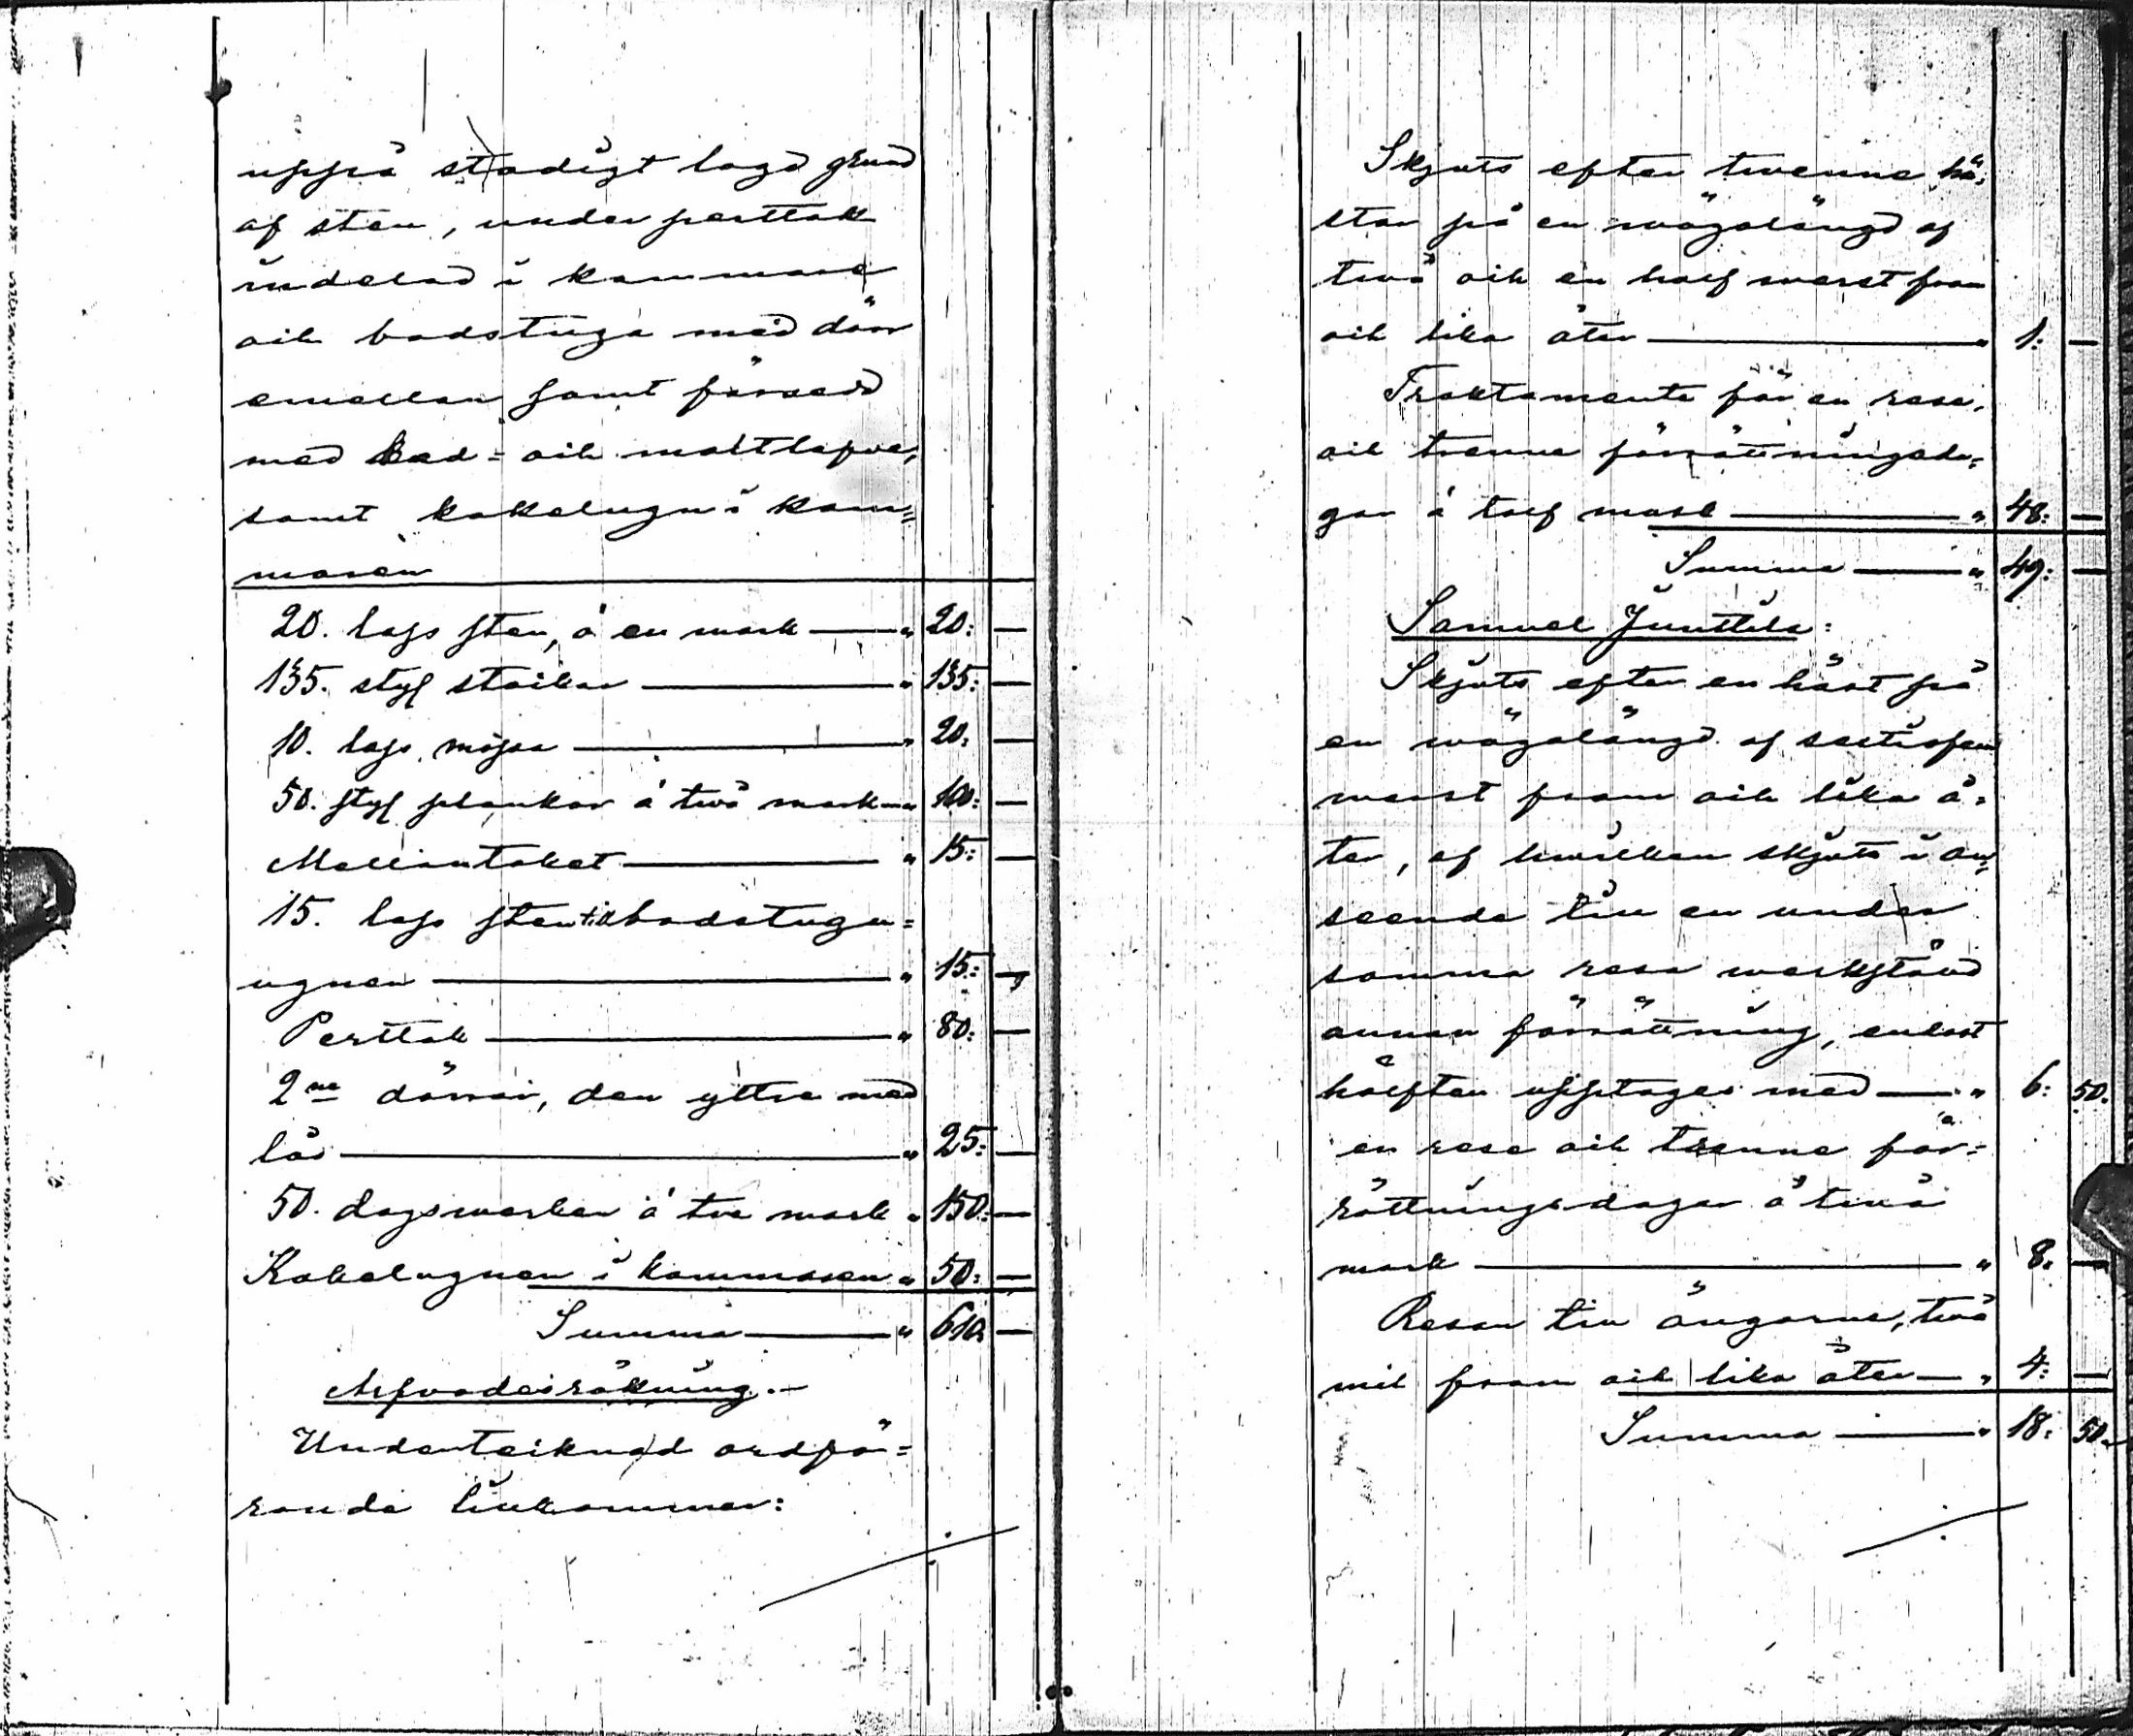 uppå stadigt lagd grund
af sten, under perttak
indelad i kammare
och badstuga med dörr
emellan samt försedd
med bad= och maltlafve,
samt kakelugn i kam=
maren
20. lass sten, à en mark — " 20: —
135. styf stockar — " 135: —
10. lass mossa — " 20: —
50. styf plankor à två mark — " 100: —
Mellantaket — " 15: —
15. lass sten till badstugu=
ugnen — " 15: —
Perttak — " 80: —
2ne dörrar, den yttre med
lås — " 25: —
50. dagsverken à tre mark " 150: —
Kakelugnen i kammaren " 50: —
Summa — " 610 —
Arfvodesräkning.—
Undertecknad ordfö=
rande tillkommer:
Skjuts efter tvenne hä=
star på en wägalängd af
två och en half werst fram
och lika åter — " 1: —
Traktamente för en resa,
och trenne förrättningsda=
gar à tolf mark — " 48: —
Summa — " 49: —
Samuel Junttila:
Skjuts efter en häst på
en wägalängd af
werst fram och lika å=
ter, af hwilken skjuts i an=
seende till en under
samma resa werkstäld
annan förrättning, endast
hälften upptages med — " 6: 50.
en resa och trenne för=
rättningsdagar à två
mark — " 8. —
Resan till ängarne, två
mil fram och lika åter — " 4: —
Summa — " 18: 50.